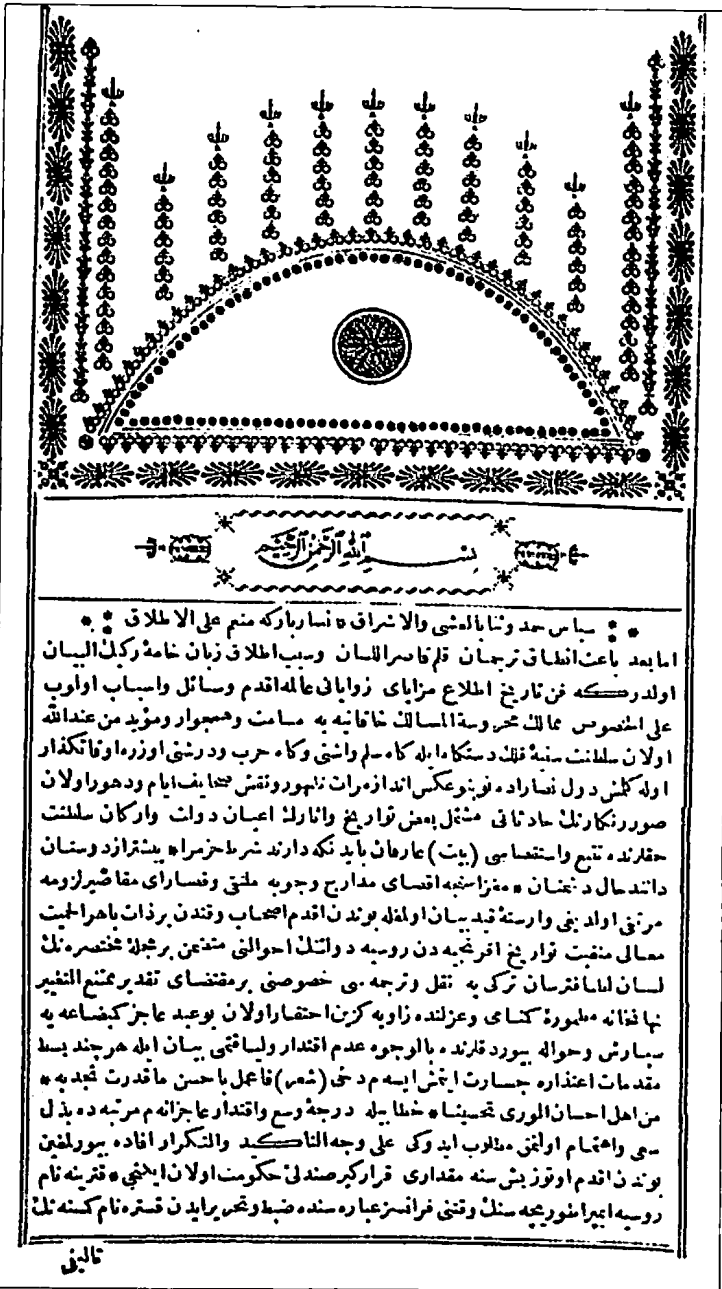 بسم الله الرحمن الرحيم
سپاس حمد وثنا بالعشی والاشراق * نسار بارکه منعم علی الاطلاق
امابعد باعث انطاق ترجمان قلم قاصر اللسان وسبب اطلاق زبان خامهٔ رکیك البیان
اولدرکه فن تاریخ اطلاع مزایای زوایای عالمه اقدم وسائل واسباب اولوب
علی الخصوص ممالك محروسة المسالك خاقانیه یه مسامت وهمجوار ومؤید من عندالله
اولان سلطنت سنیهٔ فلك دستکاه ایله کاه سلم واشتی وکاه حرب ودرشتی اوزره اوقاتکذار
اوله کلمش دول نصاراده نوبنو عکس اندازهٔ مرات ظهور ونقش صحایف ایام ودهور اولان
صور رنکارنك حادثاتی مشتمل بعض تواریخ واثارك اعیان دولت وارکان سلطنت
حقلرنده تتبع واستقصاسی (بیت) عارفان باید نکه دارند شرط حزم را * پیشتر از دوستان
دانند حال دشمنان * مغزاسنجه اقصای مدارج وجوبه ملتقی وقصارای مقاصیر لزومه
مرتقی اولدیغی وارستهٔ قید بیان اولمغله بوندن اقدم اصحاب وقتدن بر ذات باهر الحمیت
معالی منقبت تواریخ افرنجیه دن روسیه دولتنك احوالنی متضمن بر مجلهٔ مختصره نك
لسان لطافترسان ترکی یه نقل وترجمه سی خصوصنی بر مقتضای تقدیر ممتنع التغییر
نهانخانه مطمورهٔ کمنامی وعزلتده زاویه کزین احتقار اولان بو عبد عاجز کمبضاعه یه
سپارش وحواله بیوردقلرنده بالوجوه عدم اقتدار ولیاقتمی بیان ایله هرچند بسط
مقدمات اعتذاره جسارت ایتمش ایسه م دخی (شعر) فاعمل باحسن ما قدرت تجد به *
من اهل احسان الوری تحسینا * خطابیله درجهٔ وسع واقتدار عاجزانه م مرتبه ده بذل
سعی واهتمام اولنمق مطلوب ایدوکی علی وجه التاکید والتکرار افاده بیورلمغین
بوندن اقدم اوتوز بش سنه مقداری قرارکیر صندلئ حکومت اولان ایکنجی * قترینه نام
روسیه ایمپراطوریچه سنك وقتنی فرانسز عباره سنده ضبط وتحریر ایدن قستره نام کسنه نك
تالیفی